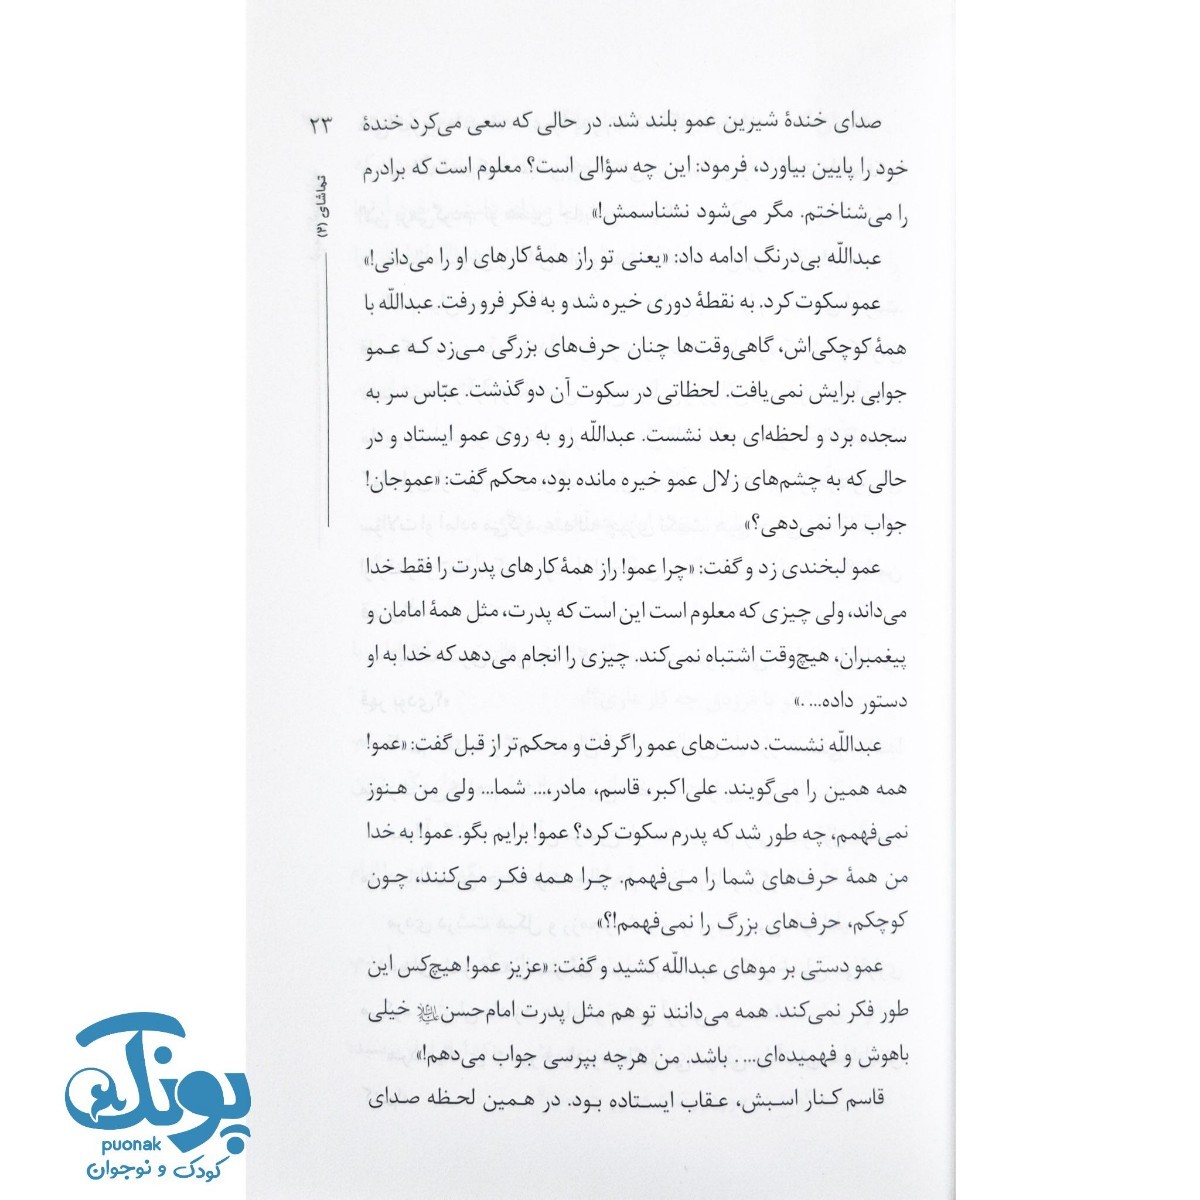 ۲۳
تماشای (۲)
صدای خندهٔ شیرین عمو بلند شد. در حالی که سعی می‌کرد خندهٔ
خود را پایین بیاورد، فرمود: این چه سؤالی است؟ معلوم است که برادرم
را می‌شناختم. مگر می‌شود نشناسمش!»
عبداللّه بی‌درنگ ادامه داد: «یعنی تو راز همهٔ کارهای او را می‌دانی!»
عمو سکوت کرد. به نقطهٔ دوری خیره شد و به فکر فرو رفت. عبداللّه با
همهٔ کوچکی‌اش، گاهی‌وقت‌ها چنان حرف‌های بزرگی می‌زد که عمو
جوابی برایش نمی‌یافت. لحظاتی در سکوت آن دو گذشت. عبّاس سر به
سجده برد و لحظه‌ای بعد نشست. عبداللّه رو به روی عمو ایستاد و در
حالی که به چشم‌های زلال عمو خیره مانده بود، محکم گفت: «عموجان!
جواب مرا نمی‌دهی؟»
عمو لبخندی زد و گفت: «چرا عمو! راز همهٔ کارهای پدرت را فقط خدا
می‌داند، ولی چیزی که معلوم است این است که پدرت، مثل همهٔ امامان و
پیغمبران، هیچ‌وقت اشتباه نمی‌کند. چیزی را انجام می‌دهد که خدا به او
دستور داده... .»
عبداللّه نشست. دست‌های عمو را گرفت و محکم‌تر از قبل گفت: «عمو!
همه همین را می‌گویند. علی‌اکبر، قاسم، مادر،... شما... ولی من هنوز
نمی‌فهمم، چه طور شد که پدرم سکوت کرد؟ عمو! برایم بگو. عمو! به خدا
من همهٔ حرف‌های شما را می‌فهمم. چرا همه فکر می‌کنند، چون
کوچکم، حرف‌های بزرگ را نمی‌فهمم!؟»
عمو دستی بر موهای عبداللّه کشید و گفت: «عزیز عمو! هیچ‌کس این
طور فکر نمی‌کند. همه می‌دانند تو هم مثل پدرت امام‌حسن علیه‌السلام خیلی
باهوش و فهمیده‌ای... . باشد. من هرچه بپرسی جواب می‌دهم!»
قاسم کنار اسبش، عقاب ایستاده بود. در همین لحظه صدای
پونک
puonak
کودک و نوجوان